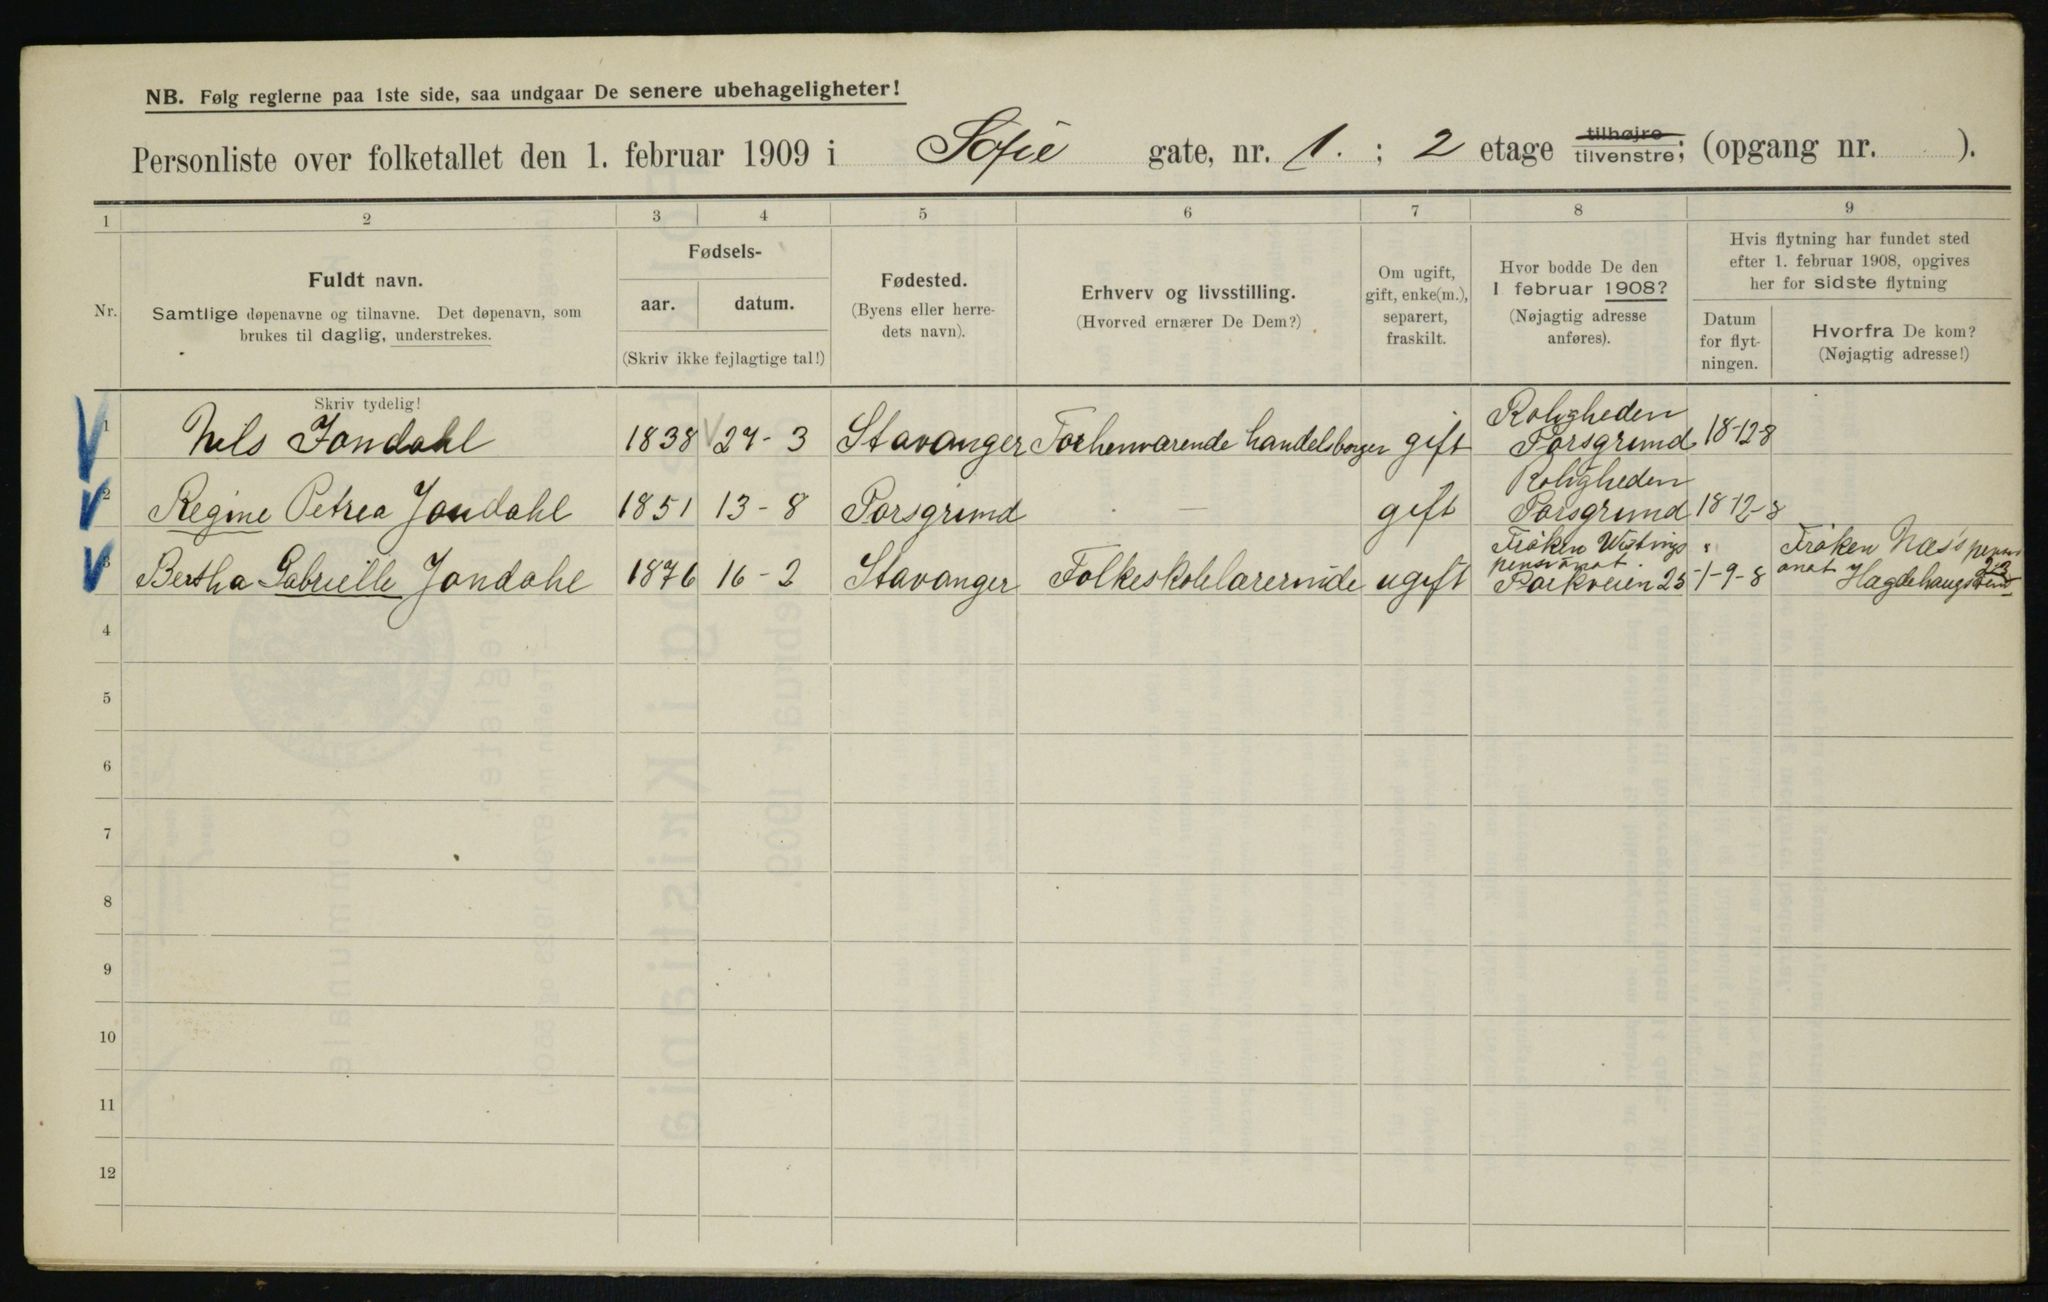 NB. Følg reglerne paa 1ste side, saa undgaar De senere ubehageligheter!
Personliste over folketallet den 1. februar 1909 i Sofie gate, nr. 1. ; 2 etage tilhøjre tilvenstre; (opgang nr. ).
1 2 3 4 5 6 7 8 9
Nr.
Fuldt navn.
Samtlige døpenavne og tilnavne. Det døpenavn, som
brukes til daglig, understrekes.
Fødsels-
aar. datum.
(Skriv ikke fejlagtige tal!)
Fødested.
(Byens eller herre-
dets navn).
Erhverv og livsstilling.
(Hvorved ernærer De Dem?)
Om ugift,
gift, enke(m.),
separert,
fraskilt.
Hvor bodde De den
1 februar 1908?
(Nøjagtig adresse
anføres).
Hvis flytning har fundet sted
efter 1. februar 1908, opgives
her for sidste flytning
Datum
for flyt-
ningen.
Hvorfra De kom?
(Nøjagtig adresse!)
Skriv tydelig!
1 Nils Jondahl 1838 27-3 Stavanger Forhenværende handelsborger gift Roligheden Porsgrund 18-12-8
2 Regine Petrea Jondahl 1851 13-8 Porsgrund — gift Roligheden Porsgrund 18-12-8
3 Bertha Gabrielle Jondahl 1876 16-2 Stavanger Folkeskolelærerinde ugift Frøken Wistings pensionat Parkveien 25 1-9-8 Frøken Næs's pensionat Hægdehaugsvein 23
4
5
6
7
8
9
10
11
12